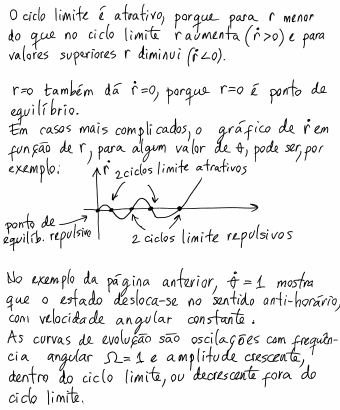 O ciclo limite é atrativo, porque para r menor
do que no ciclo limite r aumenta (ṙ>0) e para
valores superiores r diminui (ṙ<0).
r=0 também dá ṙ=0, porque r=0 é ponto de
equilíbrio.
Em casos mais complicados, o gráfico de ṙ em
função de r, para algum valor de θ, pode ser, por
exemplo:
ṙ 2 ciclos limite atrativos
r
ponto de
equilib. repulsivo
2 ciclos limite repulsivos
No exemplo da página anterior, θ̇ = 1 mostra
que o estado desloca-se no sentido anti-horário,
com velocidade angular constante.
As curvas de evolução são oscilações com frequên-
cia angular Ω=1 e amplitude crescente,
dentro do ciclo limite, ou decrescente fora do
ciclo limite.